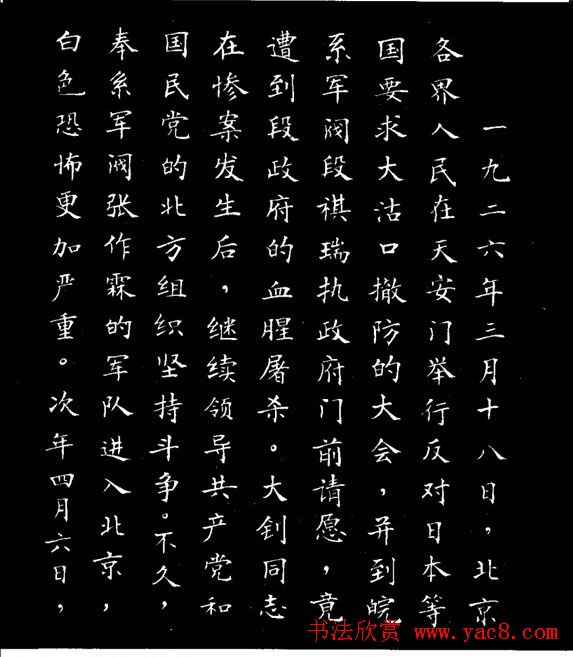 一九二六年三月十八日，北京
各界人民在天安门举行反对日本等
国要求大沽口撤防的大会，并到皖
系军阀段祺瑞执政府门前请愿，竟
遭到段政府的血腥屠杀。大钊同志
在惨案发生后，继续领导共产党和
国民党的北方组织坚持斗争。不久，
奉系军阀张作霖的军队进入北京，
白色恐怖更加严重。次年四月六日，
书法欣赏 www.yac8.com